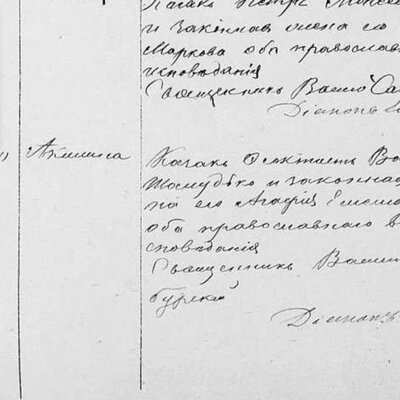 Козакъ Петръ
и законная жена его
Маркова оба православ
исповѣданія
Священникъ Васил Са
Діаконъ
Акилина
Козакъ Ѳеоктистъ Ва
и законна
на его Агафія
оба православнаго в
сповѣданія
Священникъ Васи
бурскій
Діаконъ